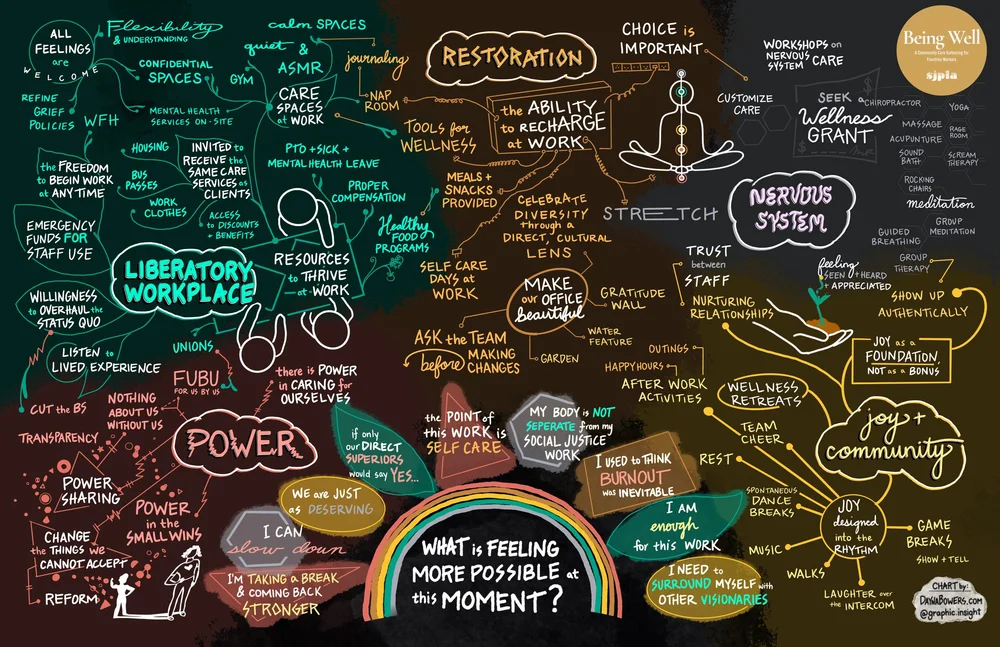 ALL
FEELINGS
are
WELCOME
Flexibility
& UNDERSTANDING
CONFIDENTIAL
SPACES
calm SPACES
quiet &
ASMR
GYM
journaling
NAP
ROOM
CARE
SPACES
at WORK
REFINE
GRIEF
POLICIES
WFH
MENTAL HEALTH
SERVICES ON-SITE
the FREEDOM
to BEGIN WORK
at ANY TIME
HOUSING
BUS
PASSES
WORK
CLOTHES
INVITED to
RECEIVE the
SAME CARE
SERVICES as
CLIENTS
ACCESS
to DISCOUNTS
+ BENEFITS
PTO + SICK +
MENTAL HEALTH LEAVE
PROPER
COMPENSATION
Healthy
FOOD
PROGRAMS
EMERGENCY
FUNDS FOR
STAFF USE
LIBERATORY
WORKPLACE
RESOURCES
to THRIVE
at WORK
WILLINGNESS
to OVERHAUL the
STATUS QUO
LISTEN to
LIVED EXPERIENCE
UNIONS
RESTORATION
CHOICE is
IMPORTANT
the ABILITY
to RECHARGE
at WORK
TOOLS for
WELLNESS
MEALS +
SNACKS
PROVIDED
CELEBRATE
DIVERSITY
through a
DIRECT, CULTURAL
LENS
STRETCH
SELF CARE
DAYS at
WORK
MAKE
our OFFICE
beautiful
GRATITUDE
WALL
WATER
FEATURE
GARDEN
ASK the TEAM
before MAKING
CHANGES
WORKSHOPS on
NERVOUS
SYSTEM CARE
Being Well
A Community-Care Gathering for
Frontline Workers
sjpla
CUSTOMIZE
CARE
SEEK a
Wellness
GRANT
CHIROPRACTOR
YOGA
MASSAGE
RAGE
ROOM
ACUPUNTURE
SOUND
BATH
SCREAM
THERAPY
ROCKING
CHAIRS
meditation
GROUP
MEDITATION
GUIDED
BREATHING
GROUP
THERAPY
NERVOUS
SYSTEM
TRUST
between
STAFF
NURTURING
RELATIONSHIPS
feeling
SEEN + HEARD
+ APPRECIATED
SHOW UP
AUTHENTICALLY
JOY as a
FOUNDATION
NOT as a BONUS
OUTINGS
HAPPY HOURS
AFTER WORK
ACTIVITIES
WELLNESS
RETREATS
joy +
community
TEAM
CHEER
REST
SPONTANEOUS
DANCE
BREAKS
MUSIC
WALKS
JOY
designed
into the
RHYTHM
GAME
BREAKS
SHOW + TELL
LAUGHTER over
the INTERCOM
FUBU
FOR US BY US
there is POWER
in CARING for
OURSELVES
CUT the BS
NOTHING
ABOUT US
WITHOUT US
TRANSPARENCY
POWER
POWER
SHARING
POWER
in the
SMALL WINS
CHANGE
the THINGS we
CANNOT ACCEPT
REFORM
if only
our DIRECT
SUPERIORS
would say YES...
the POINT of
this WORK is
SELF CARE
MY BODY is NOT
SEPERATE from my
SOCIAL JUSTICE
WORK
I USED to THINK
BURNOUT
was INEVITABLE
WE are JUST
as DESERVING
I CAN
slow down
I'M TAKING a BREAK
& COMING BACK
STRONGER
I AM
enough
for this WORK
I NEED to
SURROUND MYSELF with
OTHER VISIONARIES
WHAT is FEELING
MORE POSSIBLE at
this MOMENT?
CHART by:
DAYNABOWERS.COM
@graphic.insight